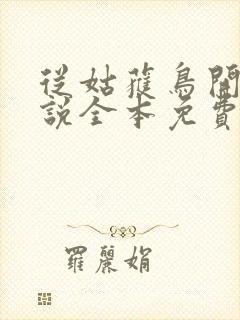 從姑獲鳥開
說全本免費
羅麗娟